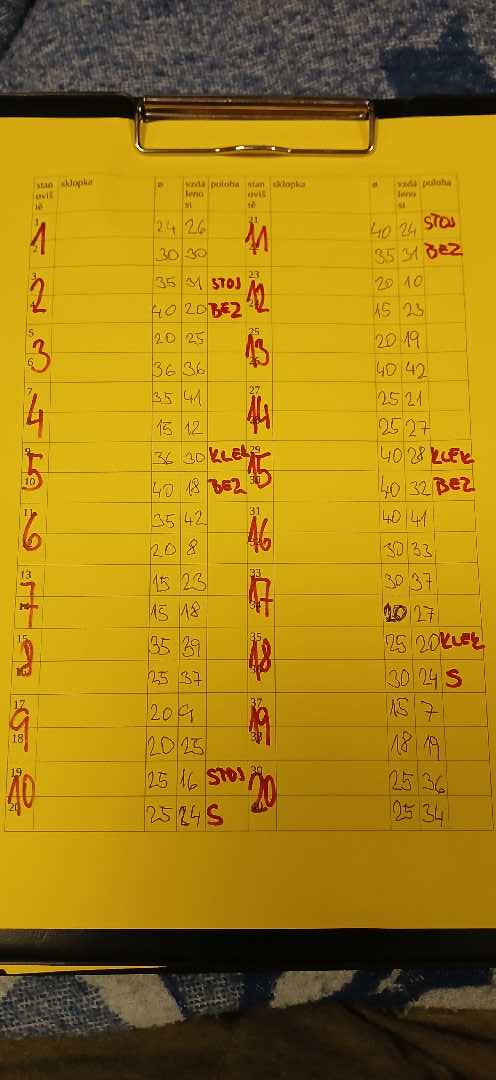 stanoviště sklopka ø vzdálenosti poloha stanoviště sklopka ø vzdálenosti poloha
1 1 24 26 21 11 40 24 STOJ
2 30 30 35 31 BEZ
3 2 35 31 STOJ 23 12 20 10
40 20 BEZ 15 23
5 3 20 25 25 13 20 19
6 36 36 40 42
7 4 35 41 27 14 25 21
15 12 25 27
5 36 30 KLEK 29 15 40 28 KLEK
10 40 18 BEZ 40 32 BEZ
11 6 35 42 31 16 40 41
20 8 30 33
13 7 15 23 33 17 30 37
15 18 20 27
15 8 35 39 35 18 25 20 KLEK
25 37 30 24 S
17 9 20 9 37 19 15 7
18 20 25 18 19
19 10 25 16 STOJ 39 20 25 36
20 25 24 S 25 34